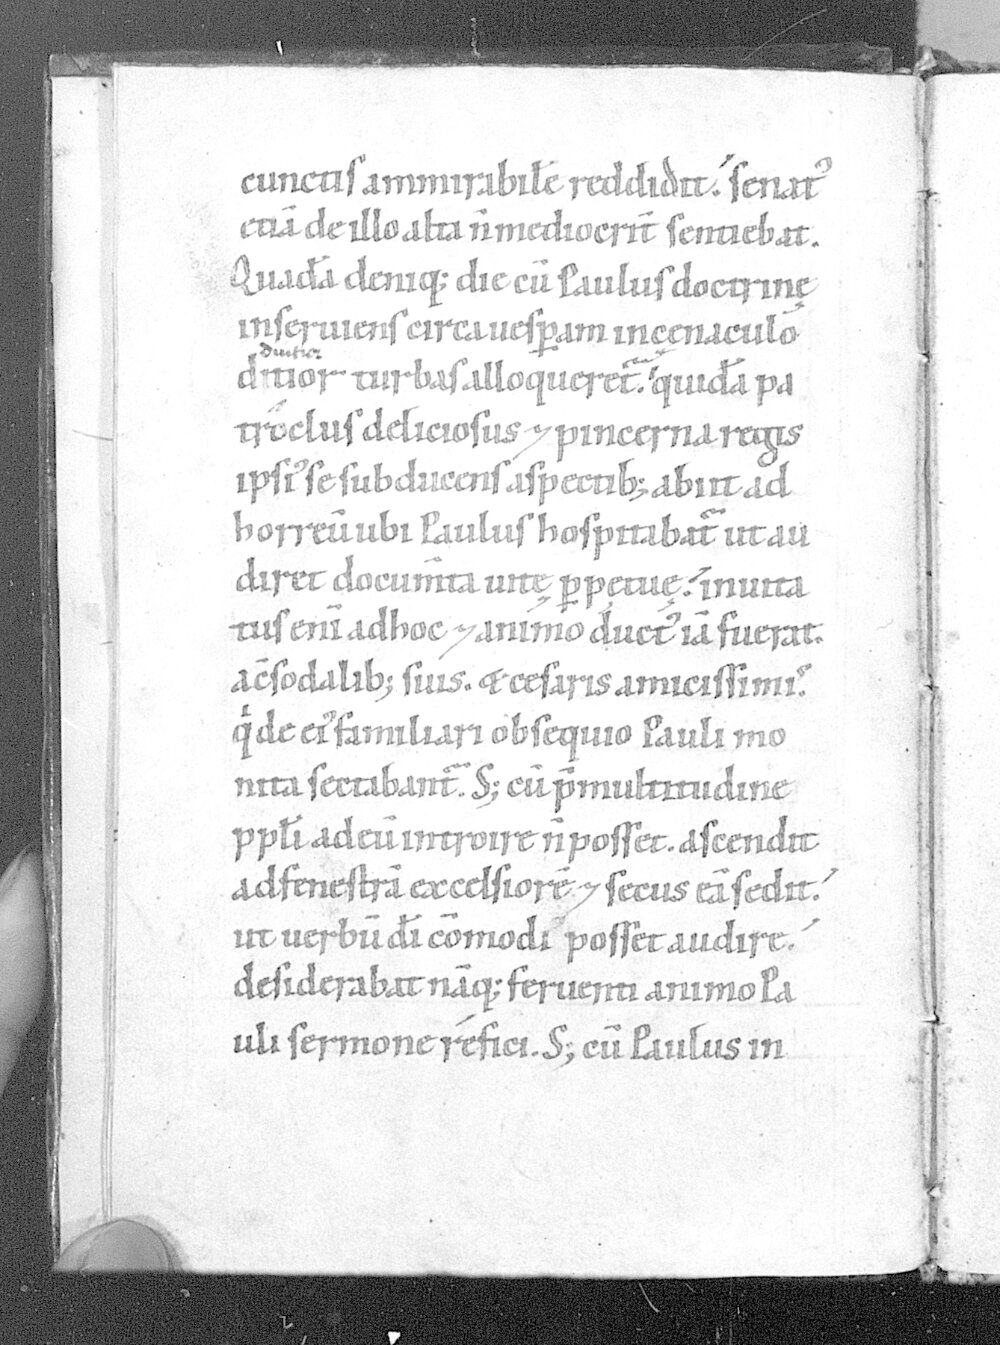 cunctis ammirabilē reddidit. senat⁹
etiā de illo alta n̄ mediocrit̄ sentiebat.
Quadā deniq; die cū Paulus doctrinę
inseruiens circa uesꝑam in cenaculo
diutius
ditior turbas alloqueret̄. quidā pa
troclus deliciosus ⁊ pincerna regis
ipsi⁹ se subducens aspectib; abiit ad
horreū ubi Paulus hospitabat̄ ut au
diret docum̄ta uitę ꝑpetuę. inuita
tus enī adhoc ⁊ animo duct⁹ iā fuerat.
ac̄ sodalib; suis. & cesaris amicissimi⁹.
q̇de ei⁹ familiari obsequio Pauli mo
nita sectabant̄. S; cū p̄ multitudine
ppl̄i ad eū introire n̄ posset. ascendit
ad fenestrā excelsiorē ⁊ secus eā sedit.
ut uerbū dī cōmodi posset audire.
desiderabat nāq; feruenti animo Pa
uli sermone refici. S; cū Paulus in